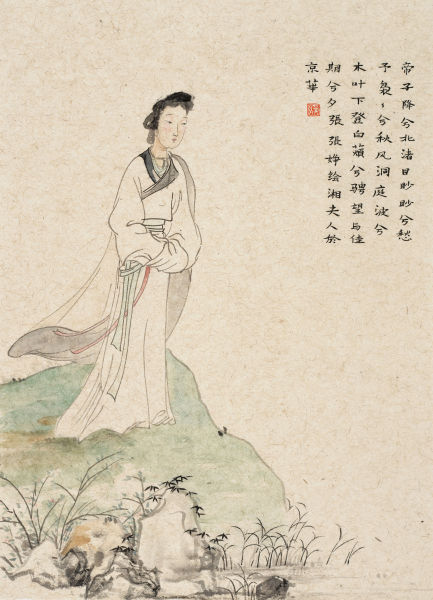 帝子降兮北渚目眇眇兮愁
予裊々兮秋风洞庭波兮
木叶下登白薠兮骋望与佳
期兮夕張張绘湘夫人於
京華